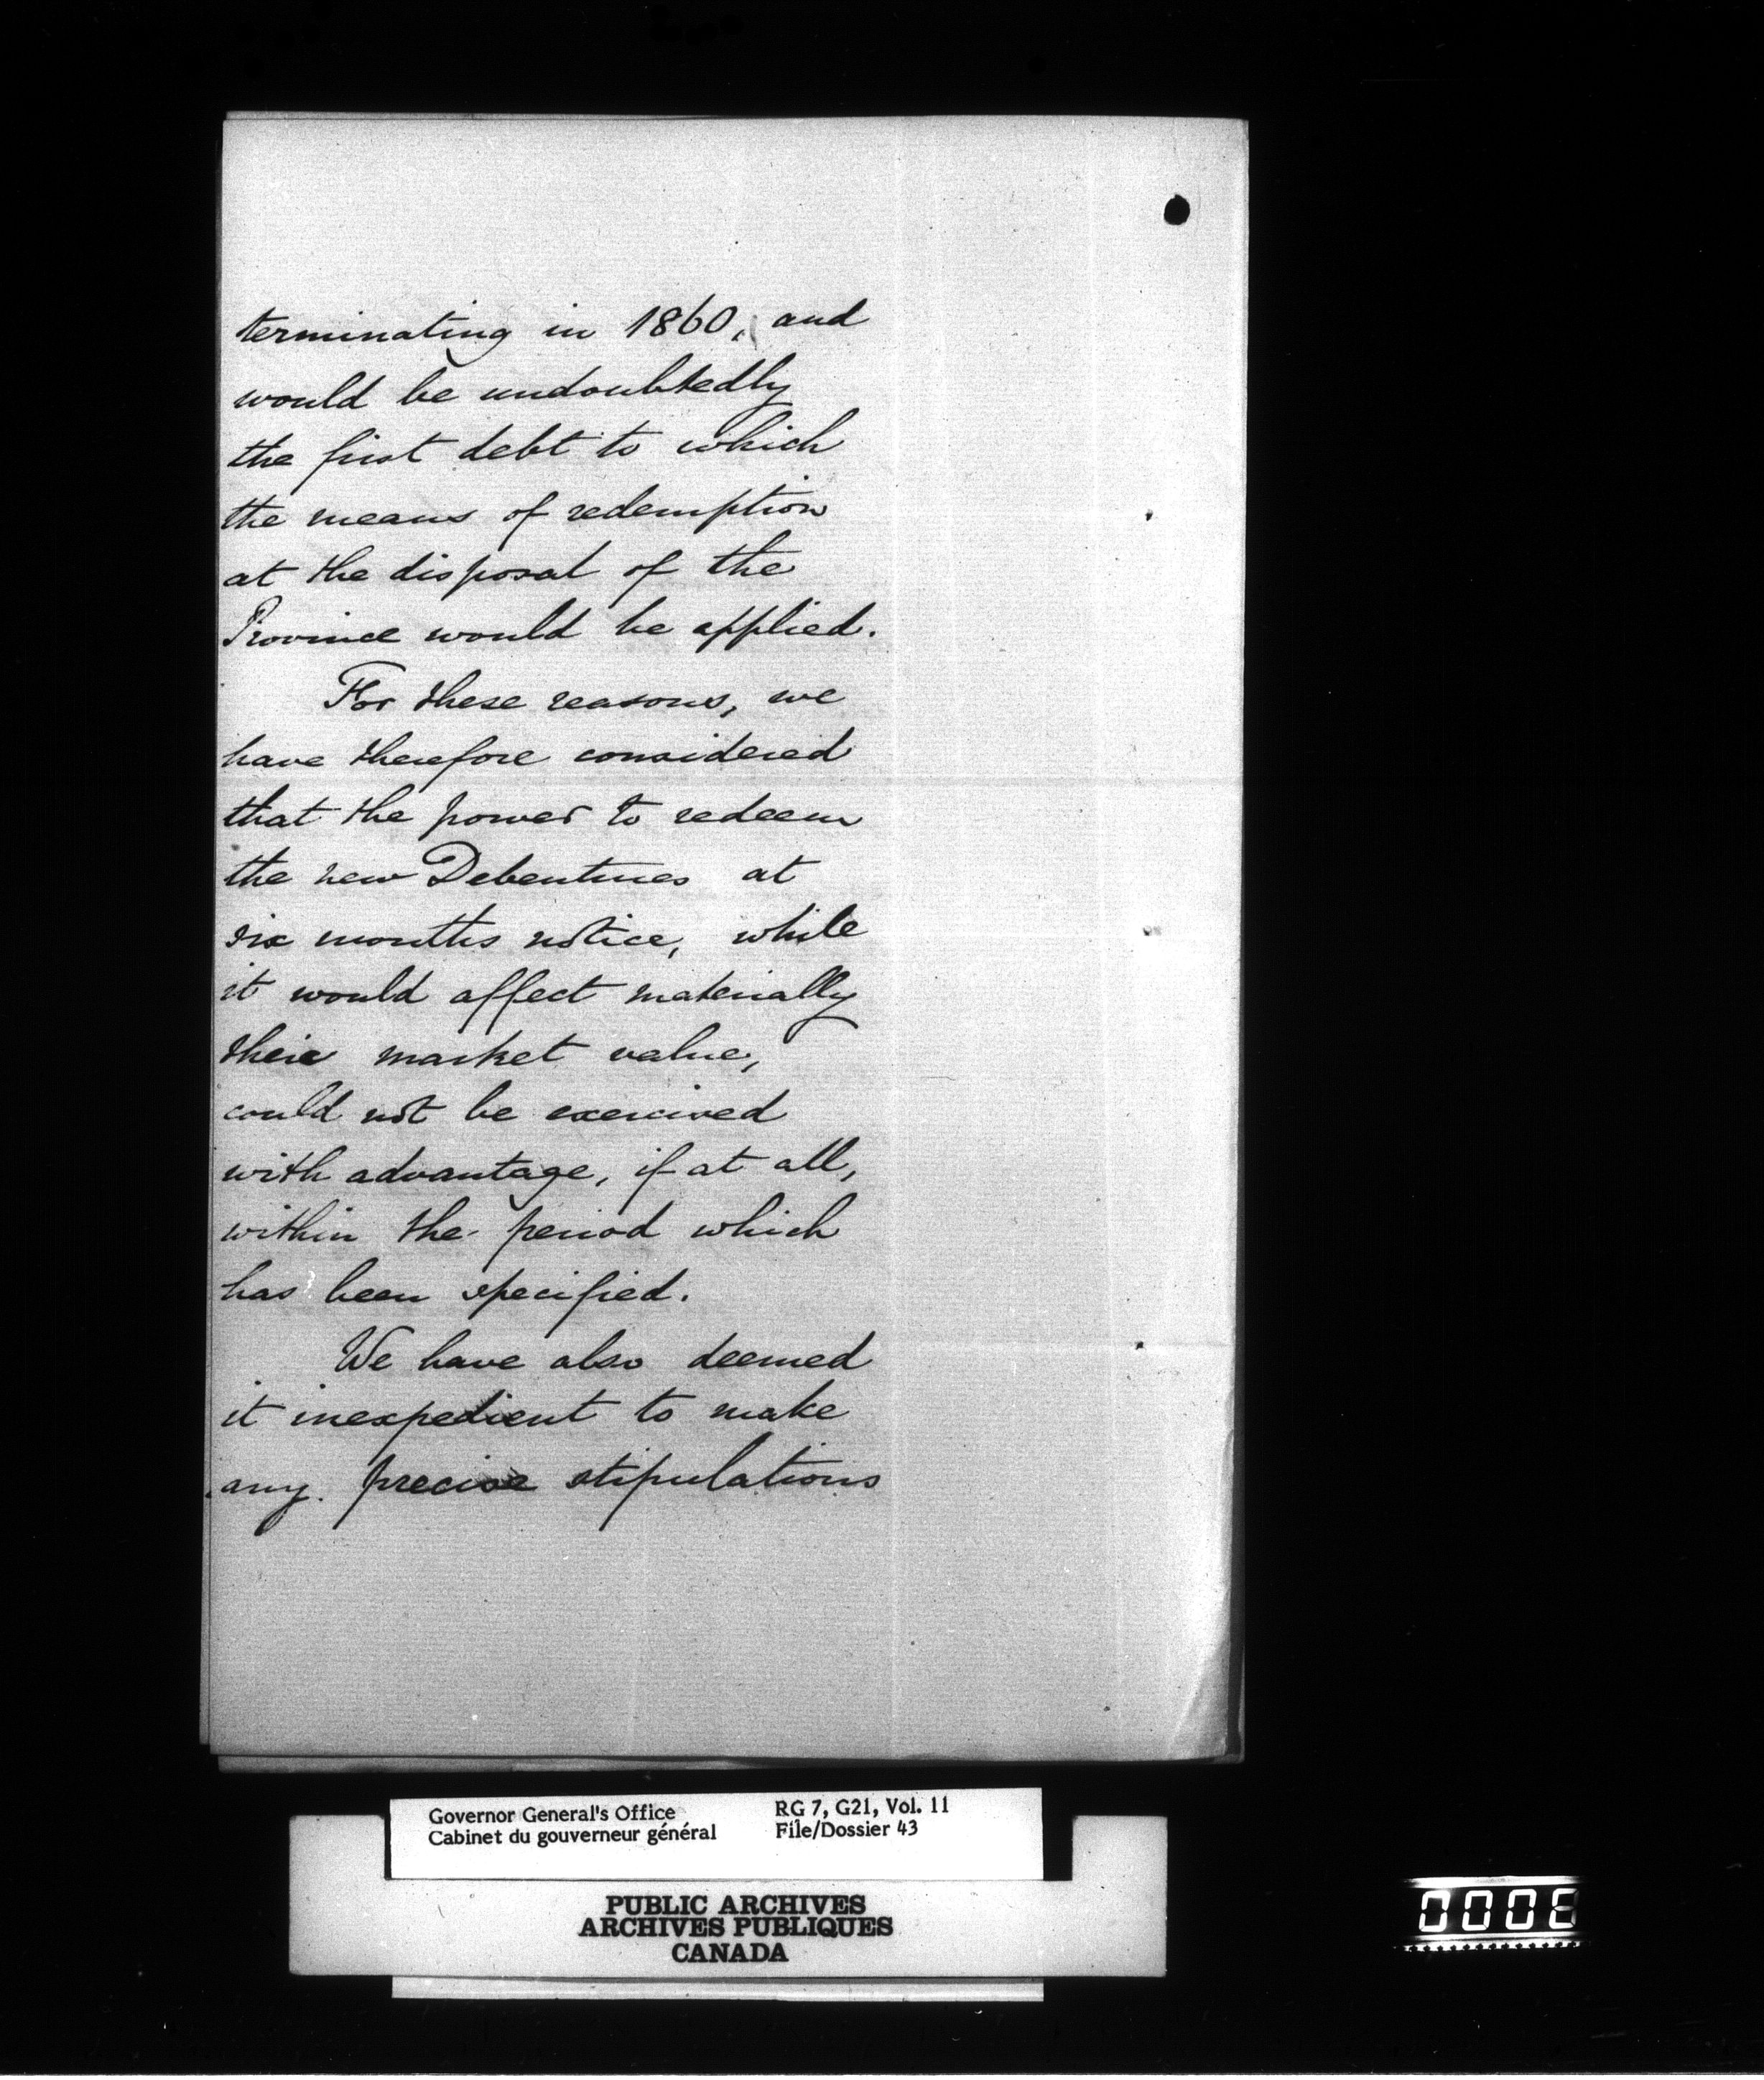 terminating in 1860, and
would be undoubtedly
the first debt to which
the means of redemption
at the disposal of the
Province would be applied.
For these reasons, we
have therefore considered
that the power to redeem
the new Debentures at
six months notice, while
it would affect materially
their market value,
could not be exercised
with advantage, if at all,
within the period which
has been specified.
We have also deemed
it inexpedient to make
any precise stipulations
Governor General's Office
Cabinet du gouverneur général
RG 7, G21, Vol. 11
File/Dossier 43
PUBLIC ARCHIVES
ARCHIVES PUBLIQUES
CANADA